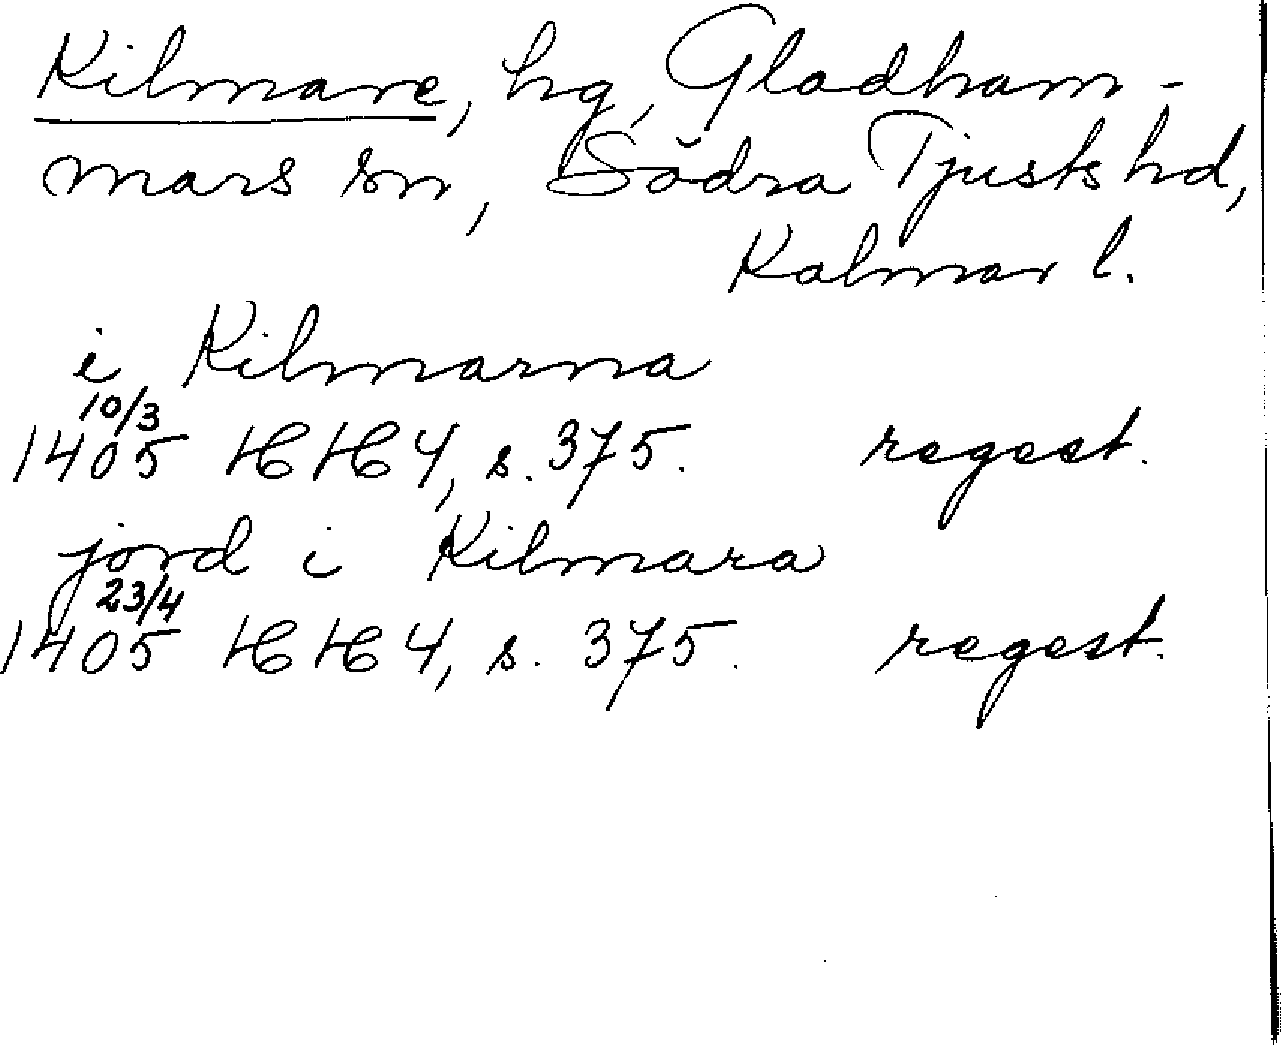 Kilmare, hg, Gladham-
mars sn, Södra Tjusts hd,
Kalmar l.
i Kilmarna
10/3
1405 HH 4, s. 375. regest.
jord i Kilmara
23/4
1405 HH 4, s. 375. regest.